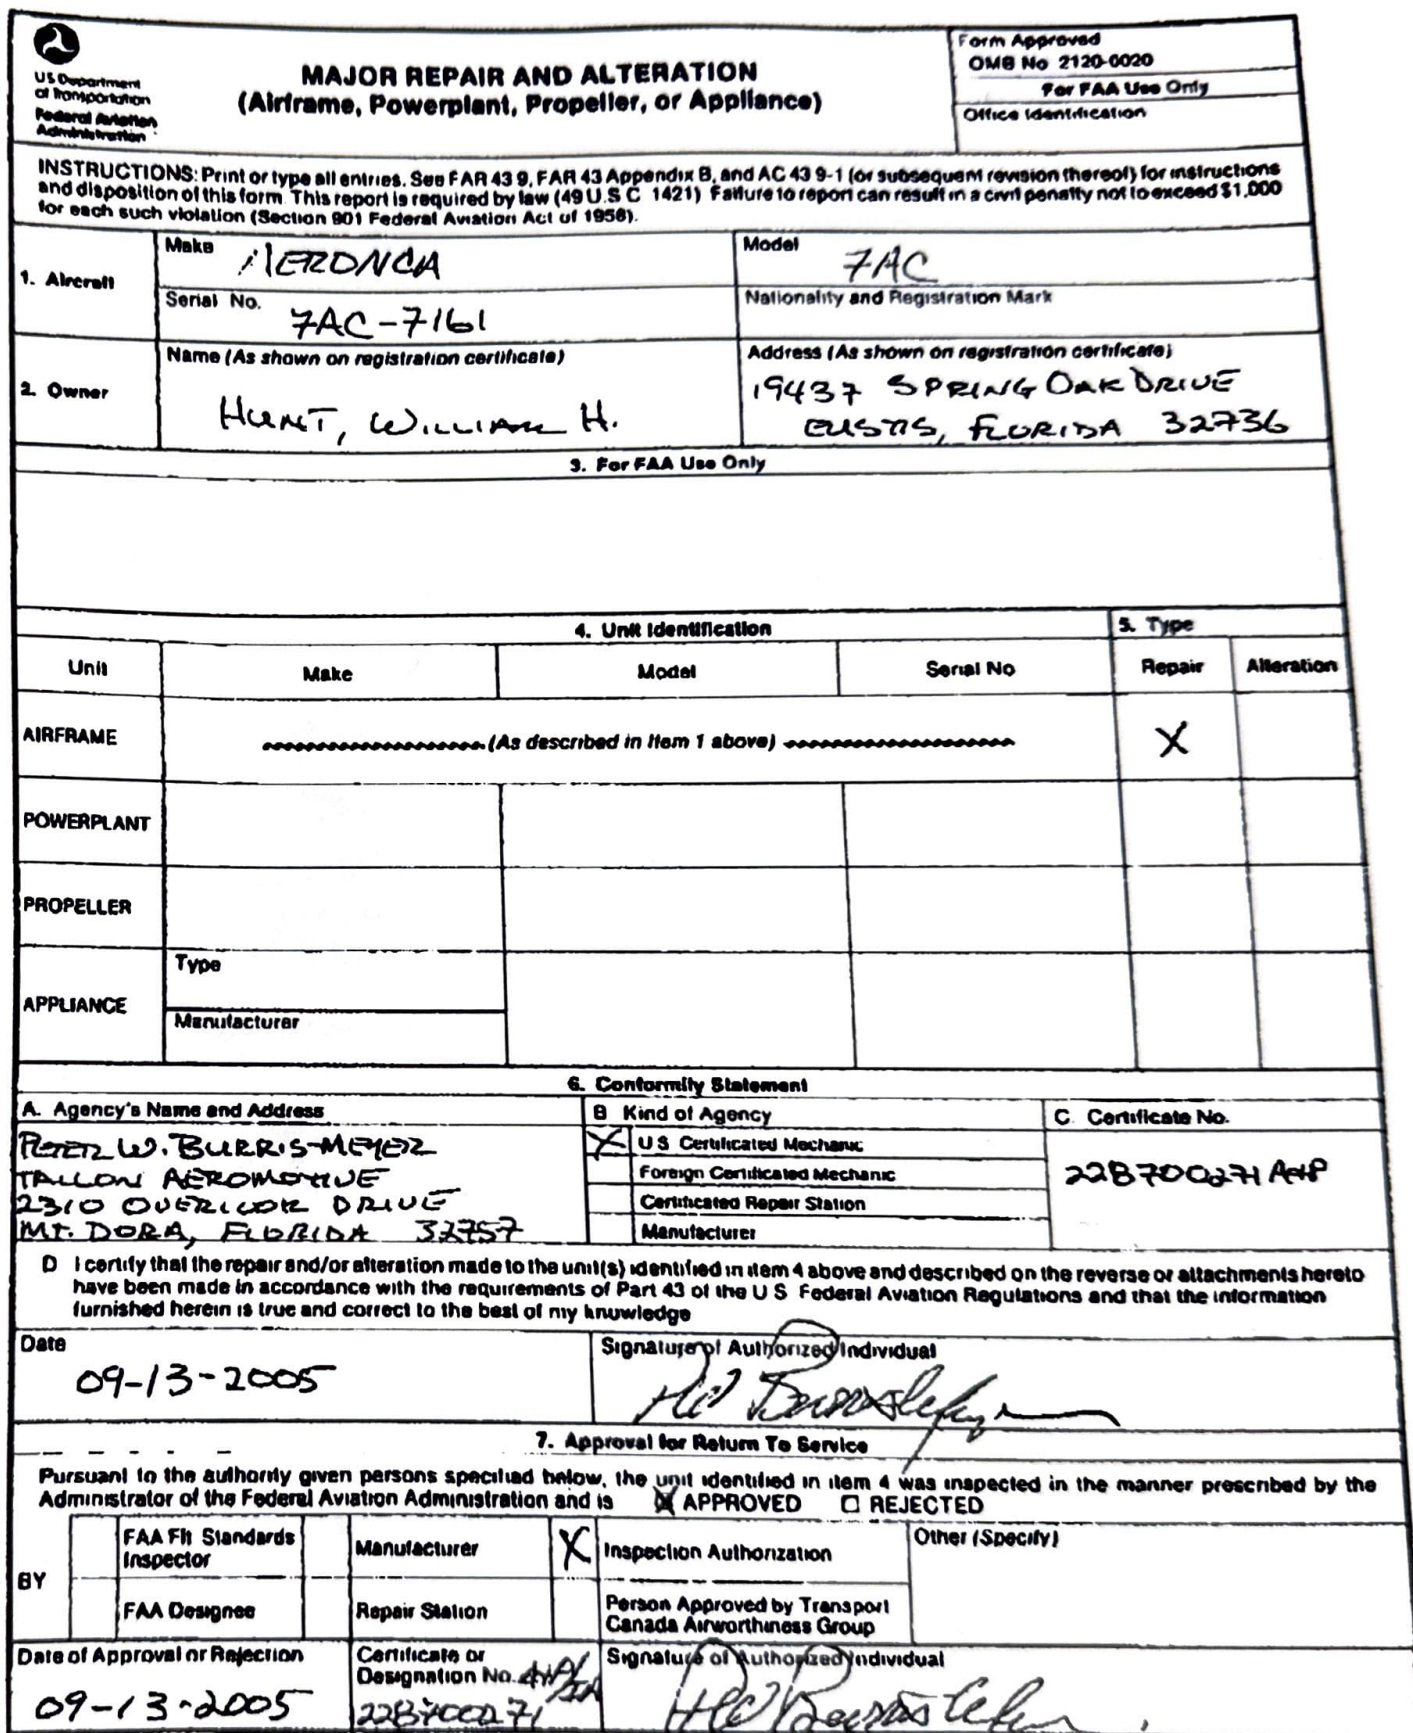 US Department
of Transportation
Federal Aviation
Administration
MAJOR REPAIR AND ALTERATION
(Airframe, Powerplant, Propeller, or Appliance)
Form Approved
OMB No 2120-0020
For FAA Use Only
Office Identification
INSTRUCTIONS: Print or type all entries. See FAR 43 9, FAR 43 Appendix B, and AC 43 9-1 (or subsequent revision thereof) for instructions
and disposition of this form This report is required by law (49 U.S C 1421) Failure to report can result in a civil penalty not to exceed $1,000
for each such violation (Section 901 Federal Aviation Act of 1958).
1. Aircraft
Make
AERONCA
Model
7AC
Serial No.
7AC-7161
Nationality and Registration Mark
2. Owner
Name (As shown on registration certificate)
HUNT, WILLIAM H.
Address (As shown on registration certificate)
19437 SPRING OAK DRIVE
EUSTIS, FLORIDA 32736
3. For FAA Use Only
4. Unit Identification
5. Type
Unit
Make
Model
Serial No
Repair
Alteration
AIRFRAME
(As described in Item 1 above)
X
POWERPLANT
PROPELLER
APPLIANCE
Type
Manufacturer
6. Conformity Statement
A. Agency's Name and Address
B Kind of Agency
C. Certificate No.
PETER W. BURRIS-MEYER
TALLON AEROMOTIVE
2310 OVERLOOK DRIVE
MT. DORA, FLORIDA 32757
X U S Certificated Mechanic
Foreign Certificated Mechanic
Certificated Repair Station
Manufacturer
22B700271 A&P
D I certify that the repair and/or alteration made to the unit(s) identified in item 4 above and described on the reverse or attachments hereto
have been made in accordance with the requirements of Part 43 of the U S Federal Aviation Regulations and that the information
furnished herein is true and correct to the best of my knowledge
Date
09-13-2005
Signature of Authorized Individual
7. Approval for Return To Service
Pursuant to the authority given persons specified below, the unit identified in item 4 was inspected in the manner prescribed by the
Administrator of the Federal Aviation Administration and is X APPROVED REJECTED
BY
FAA Flt Standards
Inspector
Manufacturer
X Inspection Authorization
Other (Specify)
FAA Designee
Repair Station
Person Approved by Transport
Canada Airworthiness Group
Date of Approval or Rejection
09-13-2005
Certificate or
Designation No. A&P/IA
22B700271
Signature of Authorized Individual